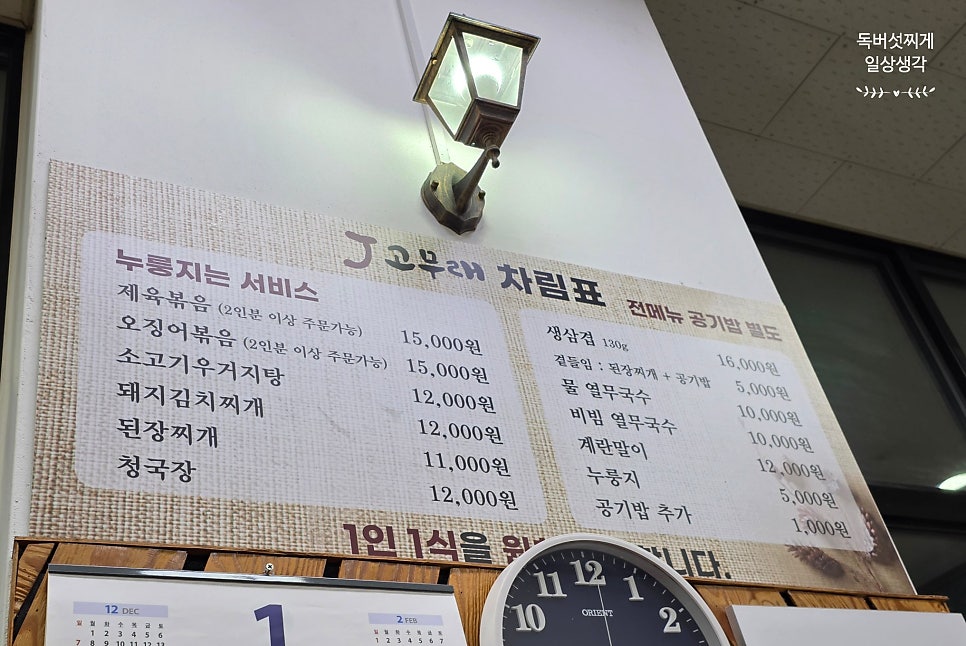 독버섯찌게
일상생각
J고무래 차림표
누룽지는 서비스
제육볶음 (2인분 이상 주문가능) 15,000원
오징어볶음 (2인분 이상 주문가능) 15,000원
소고기우거지탕 12,000원
돼지김치찌개 12,000원
된장찌개 11,000원
청국장 12,000원
전메뉴 공기밥 별도
생삼겹 130g 16,000원
곁들임 : 된장찌개 + 공기밥 5,000원
물 열무국수 10,000원
비빔 열무국수 10,000원
계란말이 12,000원
누룽지 5,000원
공기밥 추가 1,000원
1인 1식을
니다.
12 DEC
일 월 화 수 목 금 토
1 2 3 4 5 6
7 8 9 10 11 12 13
1
2 FEB
일 월 화 수 목 금 토
1 2 3 4 5 6 7
10 11 12 1 2
ORIENT